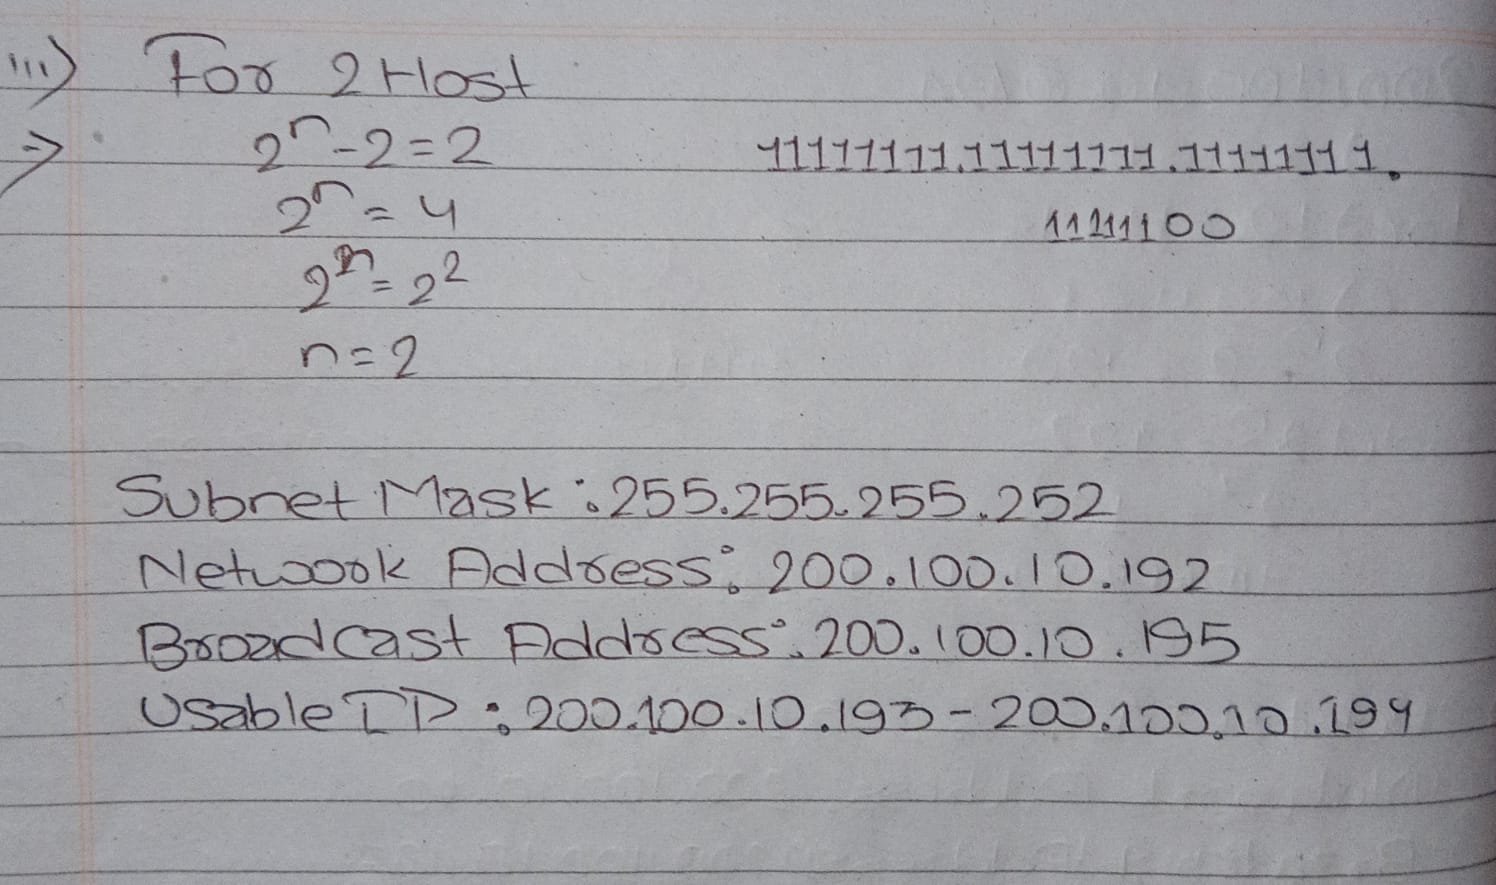 iii) For 2 Host
⇒ 2^n - 2 = 2 11111111.11111111.11111111.
2^n = 4 11111100
2^n = 2^2
n = 2
Subnet Mask : 255.255.255.252
Network Address : 200.100.10.192
Broadcast Address : 200.100.10.195
Usable IP : 200.100.10.193 - 200.100.10.194